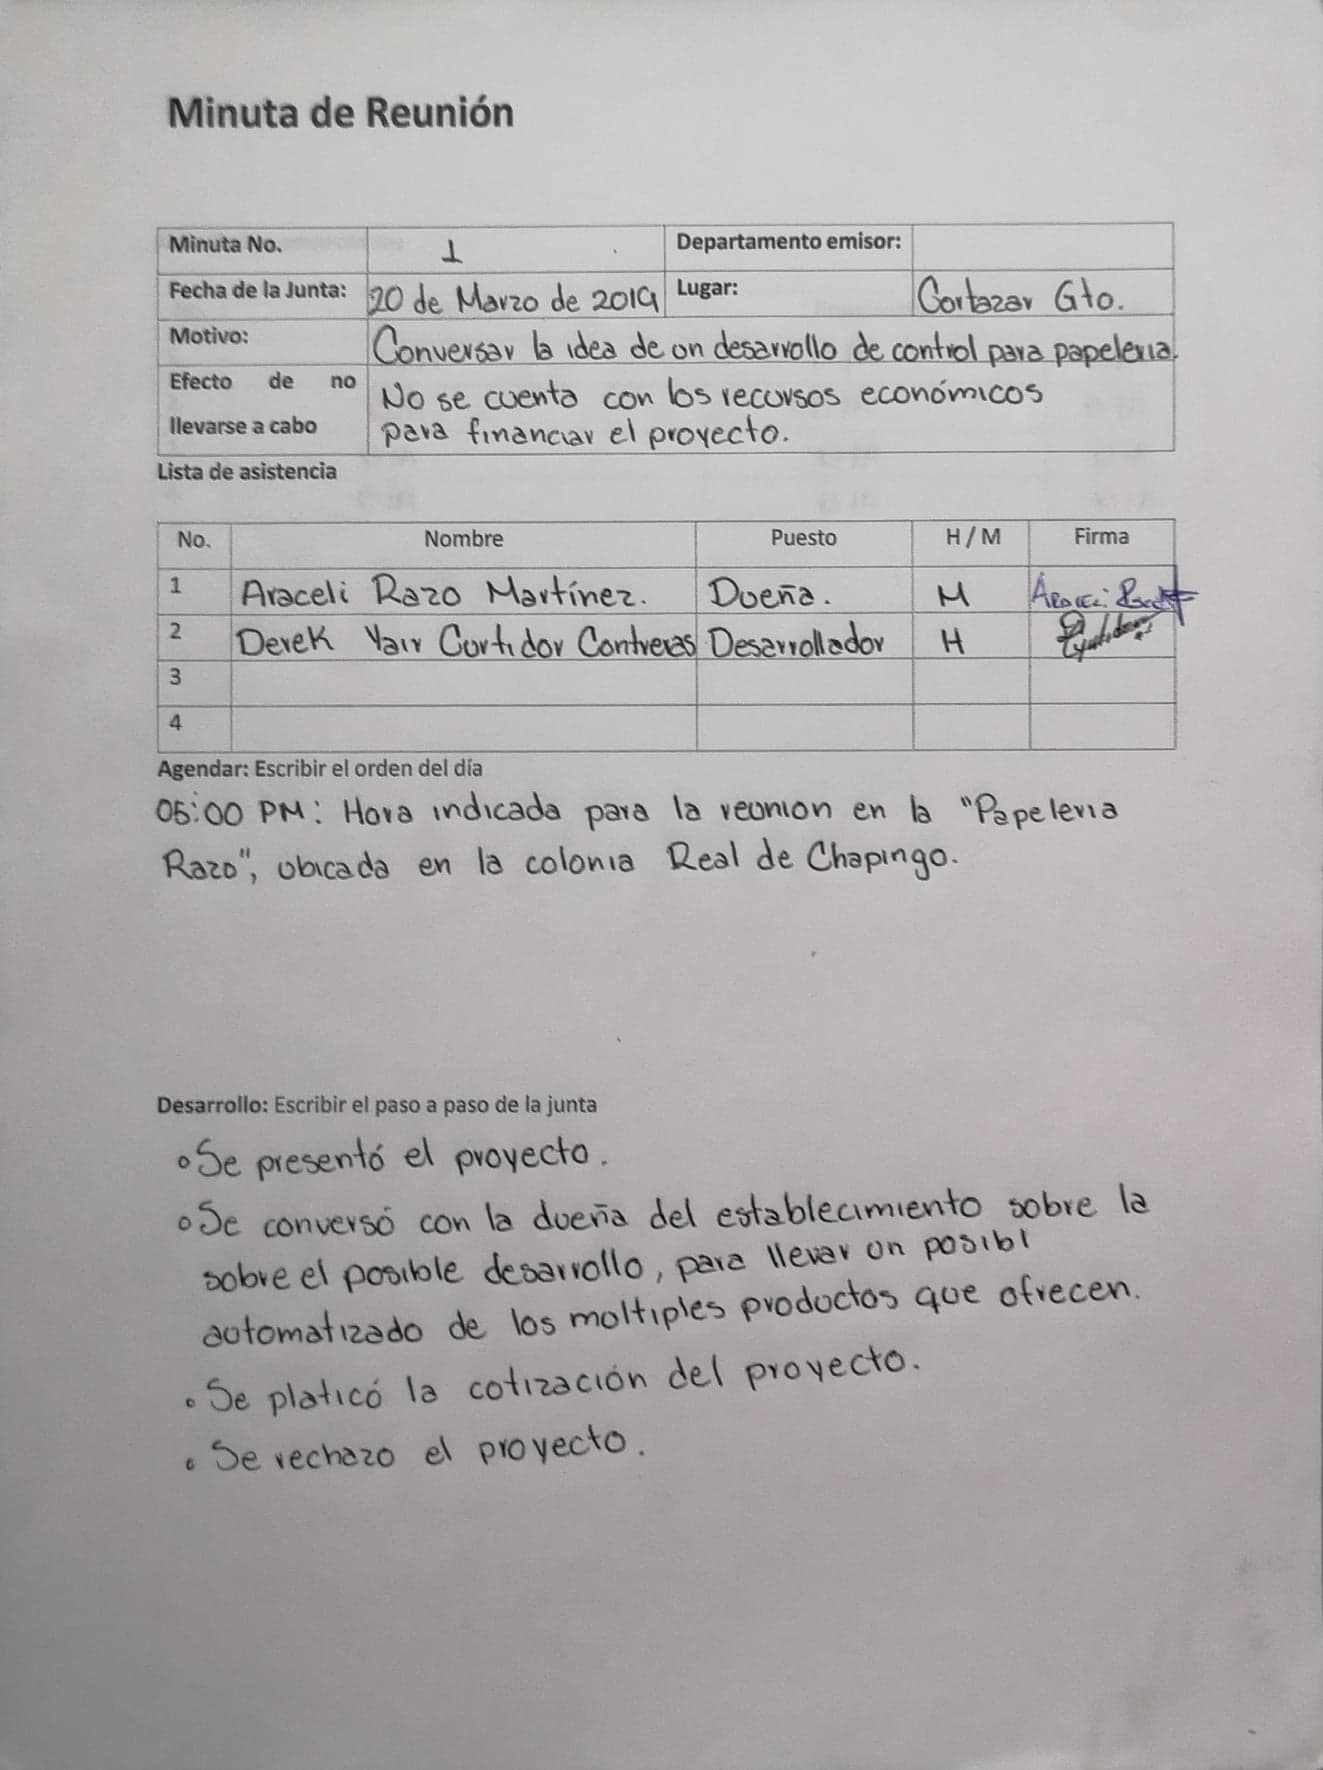 Minuta de Reunión
Minuta No. 1 Departamento emisor:
Fecha de la Junta: 20 de Marzo de 2019 Lugar: Cortazar Gto.
Motivo: Conversar la idea de un desarrollo de control para papelería.
Efecto de no No se cuenta con los recursos económicos
llevarse a cabo para financiar el proyecto.
Lista de asistencia
No. Nombre Puesto H / M Firma
1 Araceli Razo Martínez. Dueña. M Araceli
2 Derek Yair Curtidor Contreras Desarrollador H
3
4
Agendar: Escribir el orden del día
05:00 PM: Hora indicada para la reunion en la "Papeleria
Razo", ubicada en la colonia Real de Chapingo.
Desarrollo: Escribir el paso a paso de la junta
° Se presentó el proyecto.
° Se conversó con la dueña del establecimiento sobre la
sobre el posible desarrollo, para llevar un posibl
automatizado de los multiples productos que ofrecen.
° Se platicó la cotización del proyecto.
° Se rechazo el proyecto.